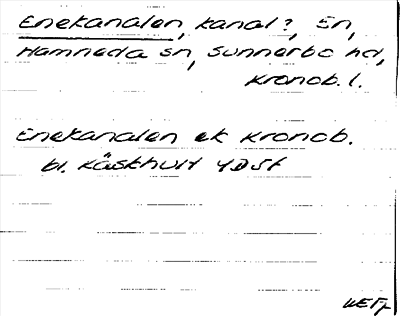 Enekanalen, kanal?, En,
Hamneda sn, Sunnerbo hd,
Kronob. l.
Enekanalen ek Kronob.
bl. Kåskhult 4D5f